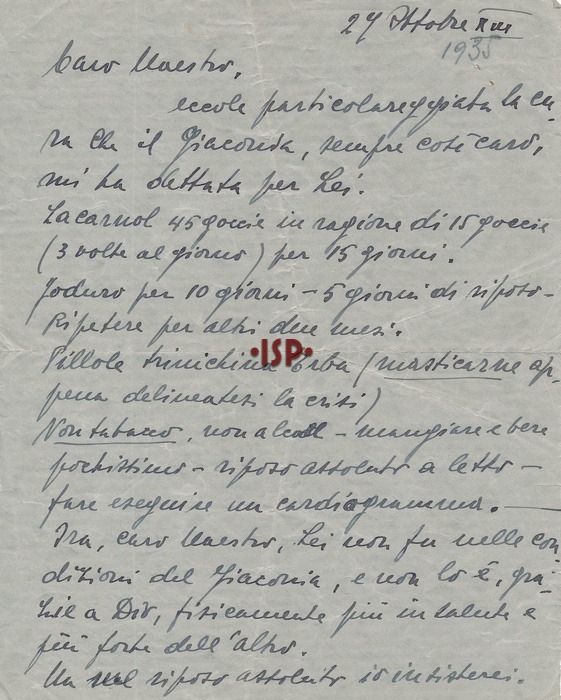 27 Ottobre XIII
1935
Caro Maestro,
eccole particolareggiata la cu-
ra che il Giaconia, sempre così caro,
mi ha dettata per Lei.
Lacarnol 45 goccie in ragione di 15 goccie
(3 volte al giorno) per 15 giorni.
Joduro per 10 giorni – 5 giorni di riposo –
Ripetere per altri due mesi.
Pillole trinitrina Erba (masticarne ap-
pena delineatesi la crisi)
•ISP•
Non tabacco, non alcool – mangiare e bere
pochissimo – riposo assoluto a letto –
fare eseguire un cardiogramma. –
Ora, caro Maestro, Lei non fu nelle con
dizioni del Giaconia, e non lo è, gra-
zie a Dio, fisicamente più in salute e
più forte dell'altro.
Un riposo assoluto io insisterei.